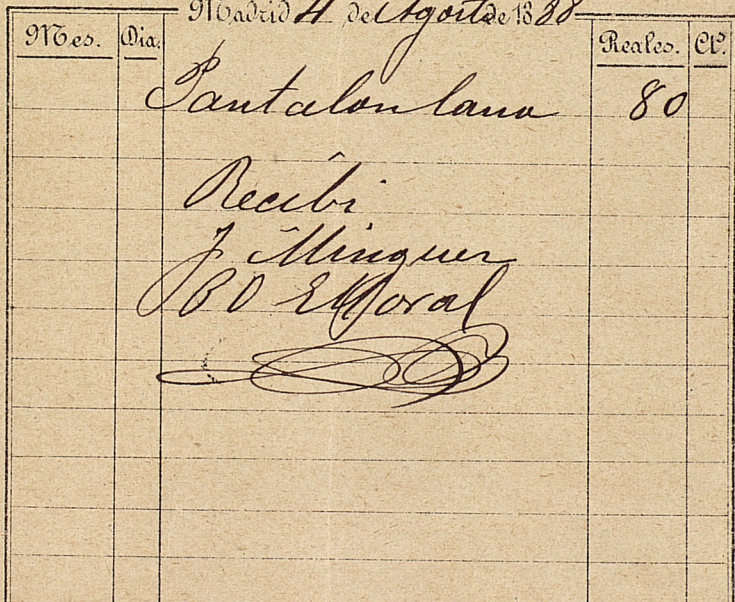 Madrid 4 de Agosto de 1888
Mes. Dia. Reales. Ct.
Pantalon lana 80
Recibi
J Minguez
PO